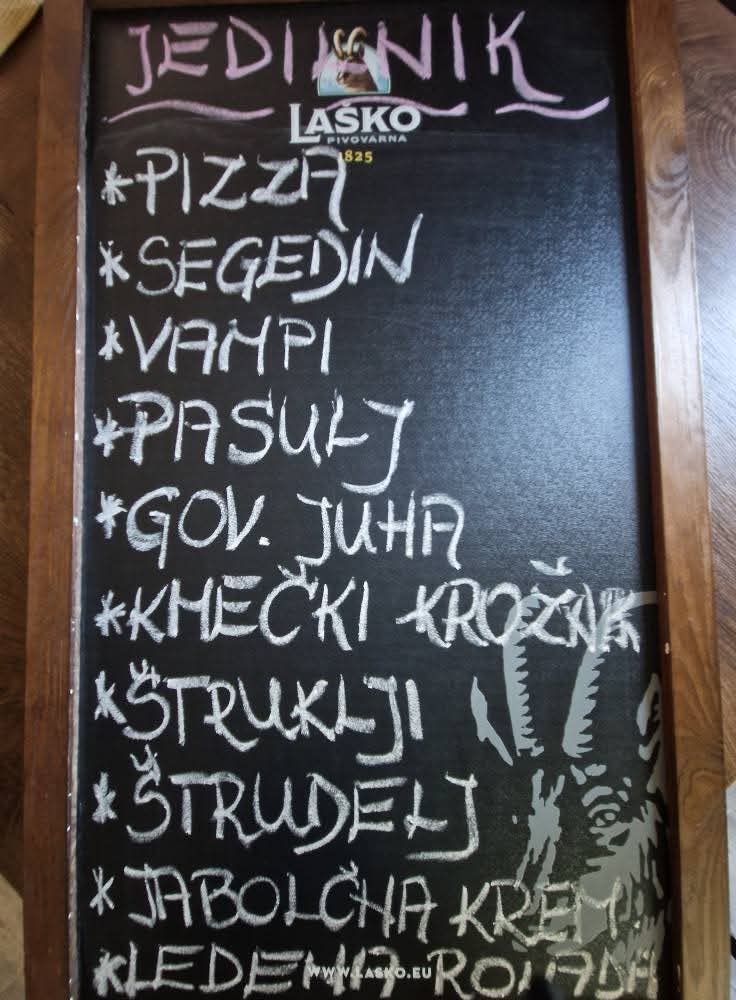 JEDILNIK
LAŠKO
PIVOVARNA
1825
*PIZZA
*SEGEDIN
*VAMPI
*PASULJ
*GOV. JUHA
*KMEČKI KROŽNIK
*ŠTRUKLJI
*ŠTRUDELJ
*JABOLČNA KREM.
*LEDENA ROLADA
WWW.LASKO.EU